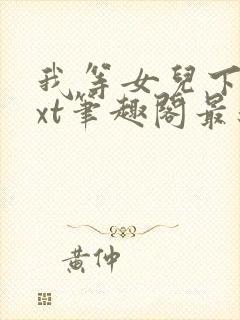 我等女兒下
xt筆趣閣最
黃仲